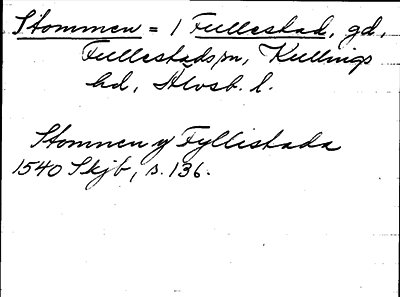 Stommen = 1 Fullestad, gd,
Fullestads sn, Kullings
hd, Älvsb. l.
Stomnen y Fyllistada
1540 Skjb, s. 136.